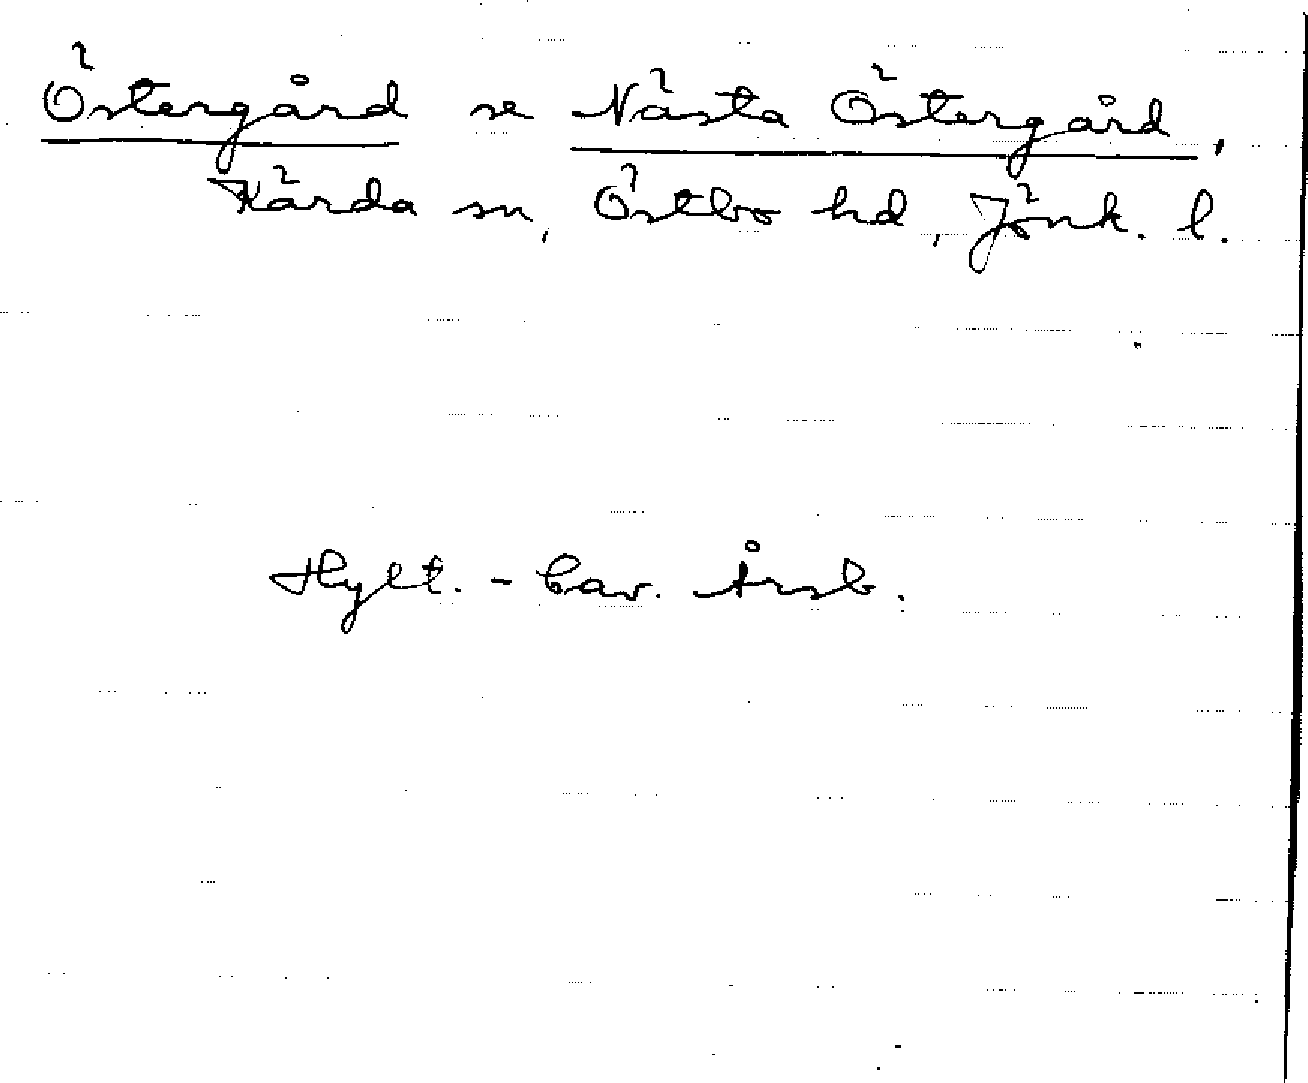 Östergård se Nästa Östergård,
Kärda sn, Östbo hd, Jönk. l.
Hylt.-Cav. Årsb.